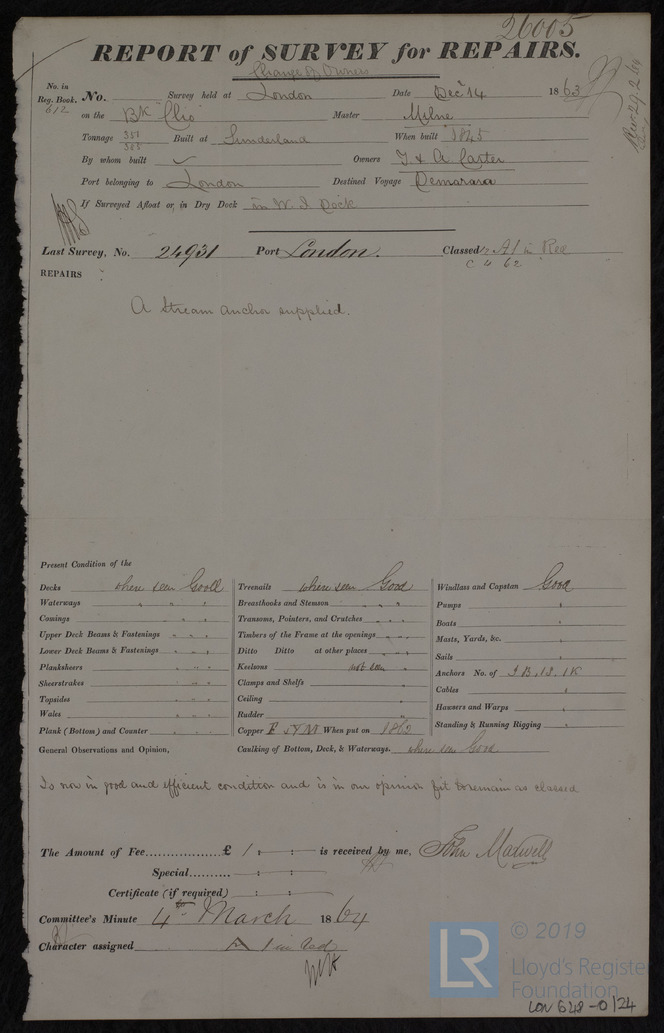 26005
REPORT of SURVEY for REPAIRS.
Change of Owners
No. in Reg. Book. 612 No. Survey held at London Date Decr 14 1863
on the Bk "Clio" Master Milne
Tonnage Built at Sunderland When built 1845
By whom built Owners T & A Carter
Port belonging to London Destined Voyage Demarara
If Surveyed Afloat or in Dry Dock in W. I Dock
Last Survey, No. 24931 Port London. Classed A1 in Red
62
REPAIRS :
A Stream anchor supplied.
Present Condition of the
Decks where seen Good
Waterways " " "
Comings " " "
Upper Deck Beams & Fastenings " " "
Lower Deck Beams & Fastenings " " "
Planksheers " " "
Sheerstrakes " " "
Topsides " " "
Wales " " "
Plank (Bottom) and Counter " " "
General Observations and Opinion,
Treenails where seen Good
Breasthooks and Stemson " " "
Transoms, Pointers, and Crutches " " "
Timbers of the Frame at the openings " " "
Ditto Ditto at other places " " "
Keelsons not seen "
Clamps and Shelfs "
Ceiling "
Rudder "
Copper When put on 1862
Caulking of Bottom, Deck, & Waterways. where seen Good
Windlass and Capstan Good
Pumps "
Boats "
Masts, Yards, &c. "
Sails "
Anchors No. of 3 B, 1 S, 1 K
Cables "
Hawsers and Warps "
Standing & Running Rigging "
Is now in good and efficient condition and is in our opinion fit to remain as classed
The Amount of Fee.................. £ 1 : : is received by me, John Maxwell
Special.......... : :
Certificate (if required) : :
Committee's Minute 4th March 1864
Character assigned A 1 in Red
© 2019
LR
Lloyd's Register
Foundation
LON 648-0124